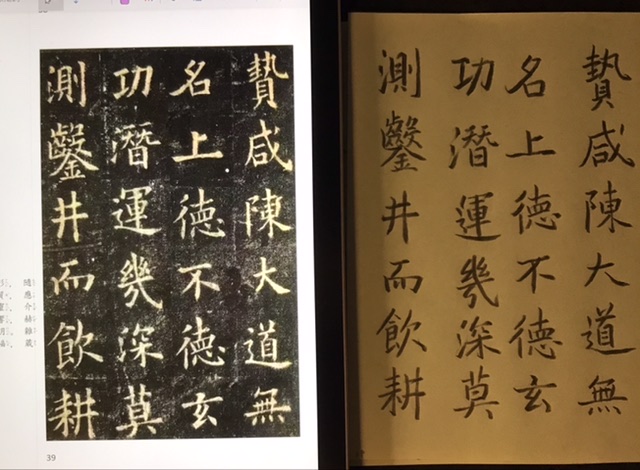 贄咸陳大道無
名上徳不徳玄
功潛運幾深莫
測鑿井而飲耕
39
贄咸陳大道無
名上徳不徳玄
功潛運幾深莫
測鑿井而飲耕